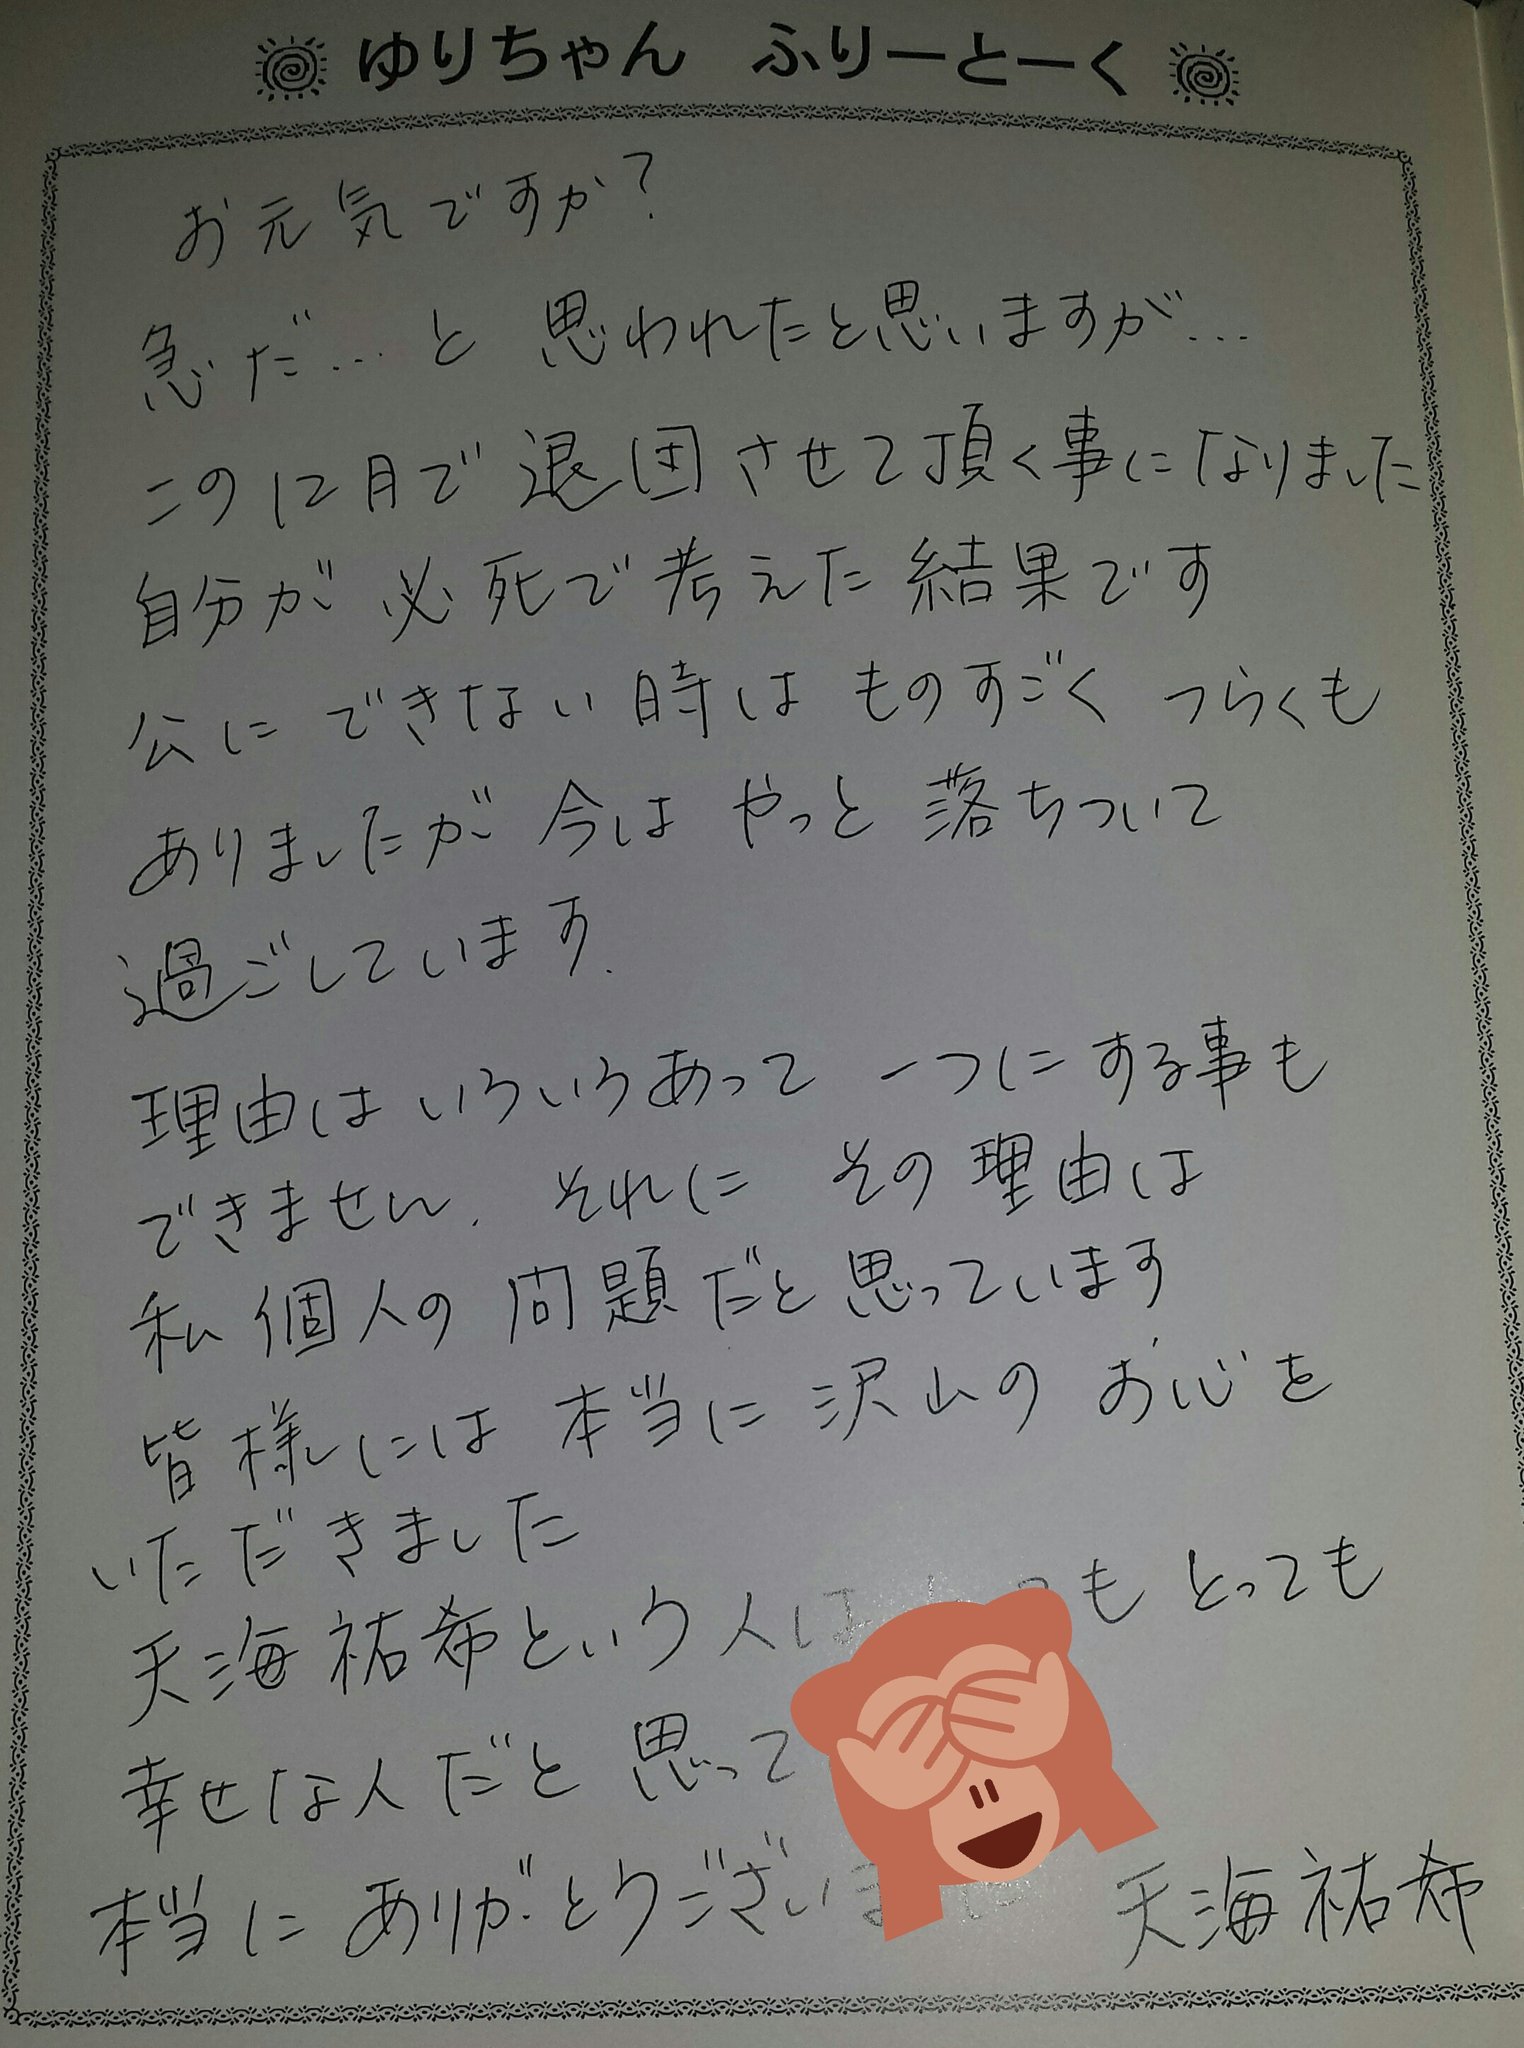 ゆりちゃん ふりーとーく
お元気ですか?
急だ… と 思われたと思いますが…
この12月で退団させて頂く事になりました
自分が必死で考えた結果です
公にできない時は ものすごく つらくも
ありましたが 今は やっと 落ちついて
過ごしています.
理由は いろいろあって 一つにする事も
できません. それに その理由は
私個人の問題だと思っています
皆様には 本当に沢山の お心を
いただきました
天海祐希という人は も とっても
幸せな人だと思って
本当に ありがとうござい 天海祐希